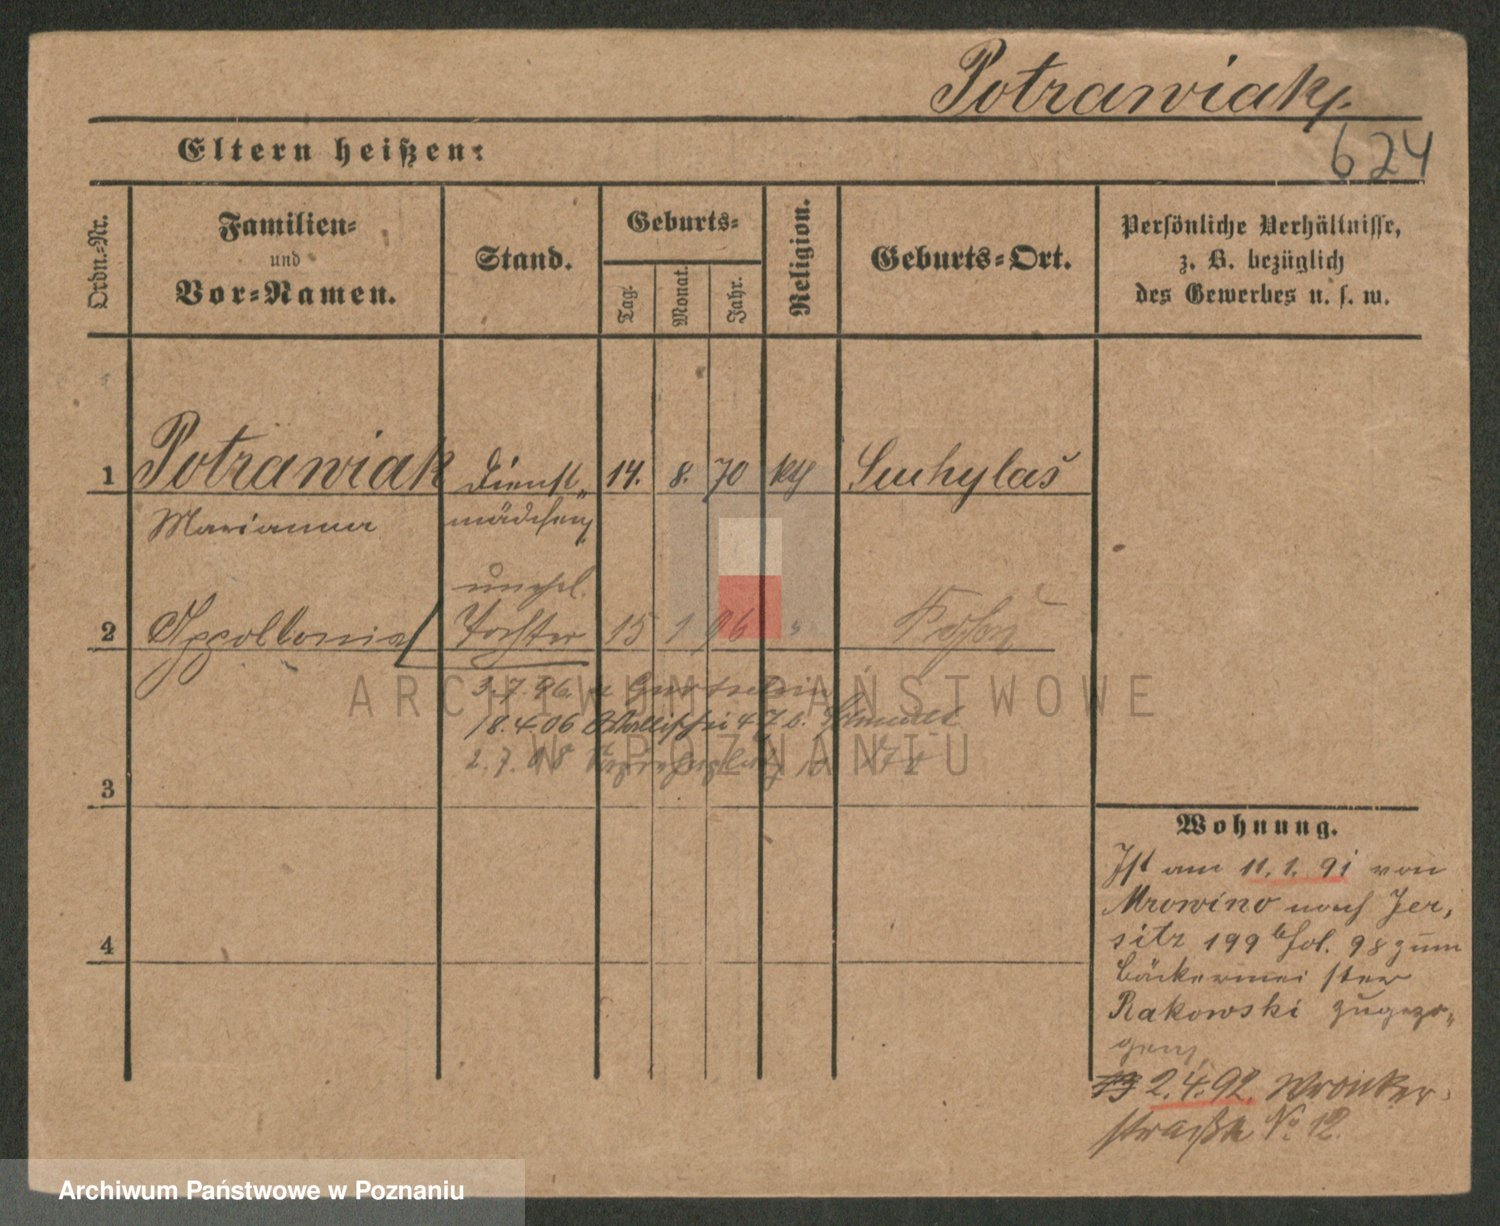 Potrawiak
624
Eltern heißen:
Ordn.-Nr.
Familien-
und
Vor-Namen.
Stand.
Geburts-
Tag.
Monat.
Jahr.
Religion.
Geburts-Ort.
Persönliche Verhältnisse,
z. B. bezüglich
des Gewerbes u. s. w.
1 Potrawiak Dienst- 14. 8. 70 kth Suchylas
Marianna mädchen
unehel.
2 Appollonia Tochter 15 1 96 Posen
3.7.96. n Gurtschin
18.4.06
2.7.08
3
4
ARCHIWUM PAŃSTWOWE
W POZNANIU
Wohnung.
Ist am 11.1.91 von
Mrowino nach Jer-
sitz 199 b fol. 98 zum
Bäckermeister
Rakowski zugezo-
gen
2.4.92. Wronker-
straße No 12.
Archiwum Państwowe w Poznaniu